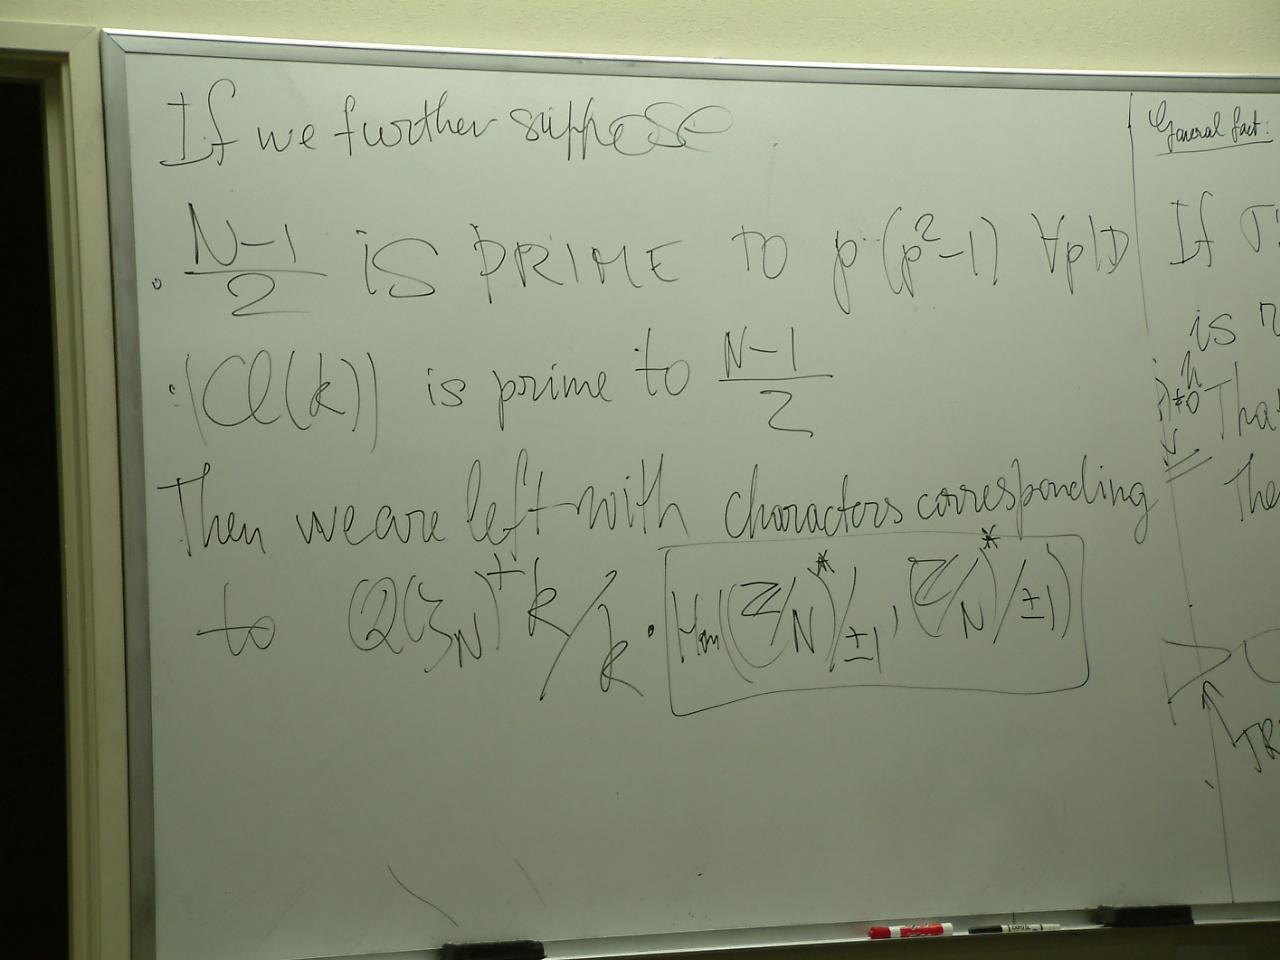 If we further suppose
· N-1/2 is PRIME TO p·(p²-1) ∀p|D
· |Cl(k)| is prime to N-1/2
Then we are left with characters corresponding
to Q(ζ_N)⁺k/k · Hom((Z/N)*/±1, (Z/N)*/±1)
General fact:
If σ
is
≠0
Tha
The